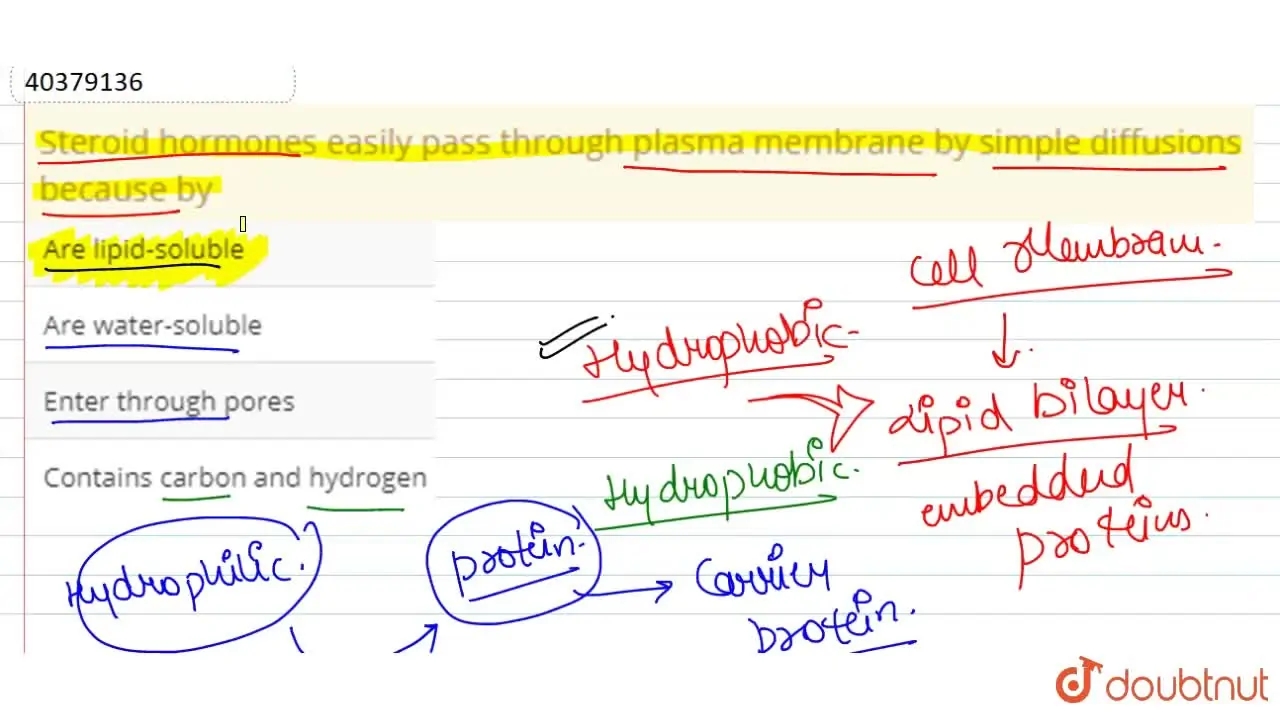 40379136
Steroid hormones easily pass through plasma membrane by simple diffusions
because by
Are lipid-soluble
Are water-soluble
Enter through pores
Contains carbon and hydrogen
Cell Membram.
Hydrophobic.
Lipid Bilayer.
Hydrophobic.
embedded
proteins.
Hydrophilic.
protein.
Carrier
protein.
doubtnut